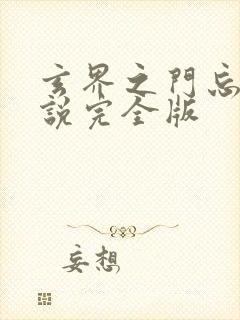 玄界之門忘
說完全版
妄想